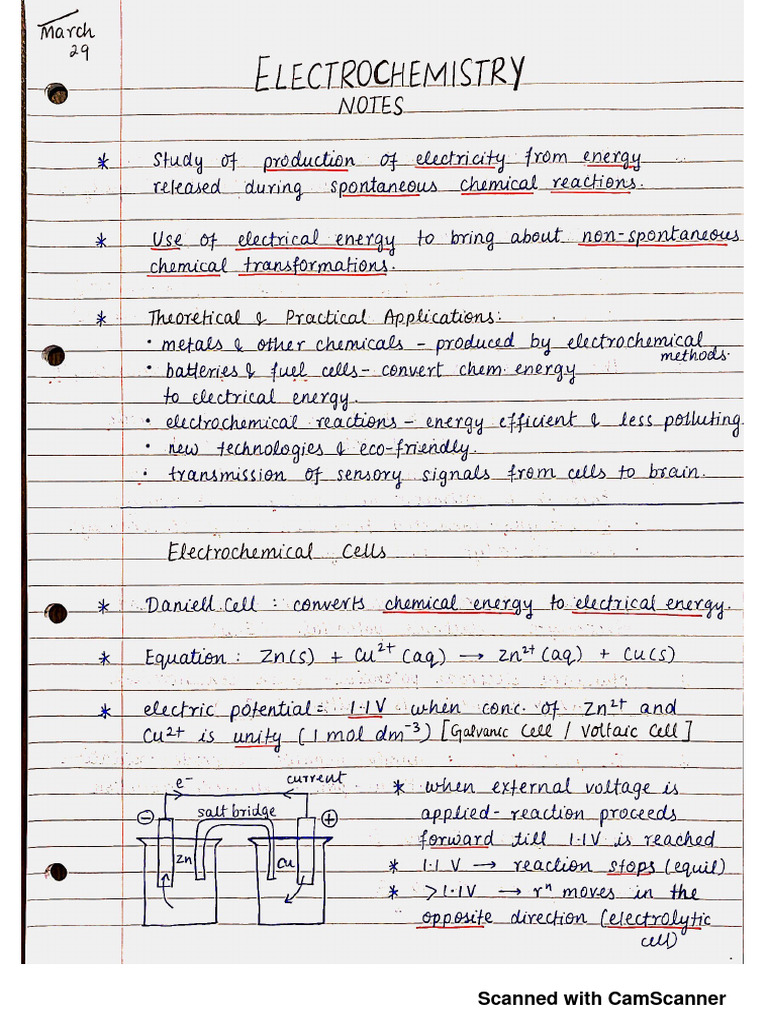 March
29
ELECTROCHEMISTRY
NOTES
* Study of production of electricity from energy
released during spontaneous chemical reactions.
* Use of electrical energy to bring about non-spontaneous
chemical transformations.
* Theoretical & Practical Applications:
• metals & other chemicals – produced by electrochemical
methods.
• batteries & fuel cells – convert chem. energy
to electrical energy.
• electrochemical reactions – energy efficient & less polluting.
• new technologies & eco-friendly.
• transmission of sensory signals from cells to brain.
Electrochemical Cells
* Daniell Cell : converts chemical energy to electrical energy.
* Equation : Zn(s) + Cu²⁺ (aq) → Zn²⁺ (aq) + Cu(s)
* electric potential = 1.1V when conc. of Zn²⁺ and
Cu²⁺ is unity (1 mol dm⁻³) [Galvanic Cell / Voltaic Cell]
e⁻ current
salt bridge
− +
Zn Cu
* when external voltage is
applied – reaction proceeds
forward till 1.1V is reached
* 1.1 V → reaction stops (equil)
* >1.1V → rⁿ moves in the
opposite direction (electrolytic
cell)
Scanned with CamScanner